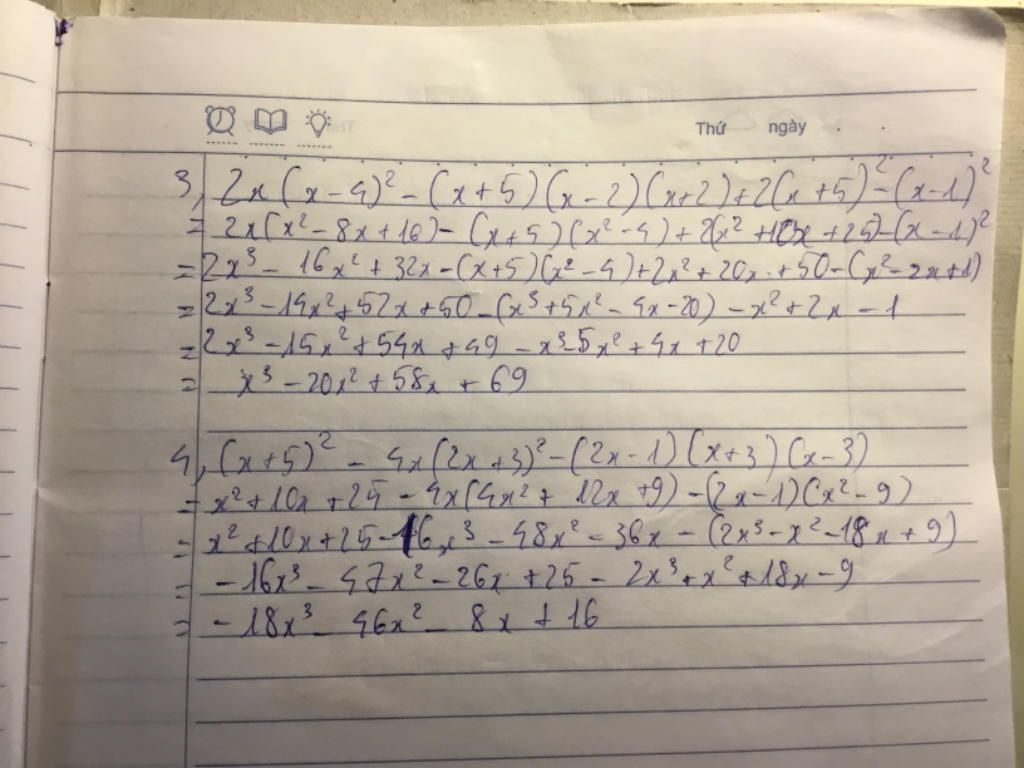 Thứ ngày
3, 2x(x-4)² - (x+5)(x-2)(x+2)+2(x+5)²-(x-1)²
= 2x(x²-8x+16)-(x+5)(x²-4)+2(x²+10x+25)-(x-1)²
= 2x³ - 16x² + 32x-(x+5)(x²-4)+2x²+20x+50-(x²-2x+1)
= 2x³-14x²+52x+50-(x³+5x²-4x-20)-x²+2x-1
= 2x³-15x²+54x+49-x³-5x²+4x+20
= x³-20x²+58x+69
4, (x+5)² - 4x(2x+3)²-(2x-1)(x+3)(x-3)
= x²+10x+25-4x(4x²+12x+9)-(2x-1)(x²-9)
= x²+10x+25-16x³-48x²-36x-(2x³-x²-18x+9)
= -16x³-47x²-26x+25-2x³+x²+18x-9
= -18x³-46x²-8x+16